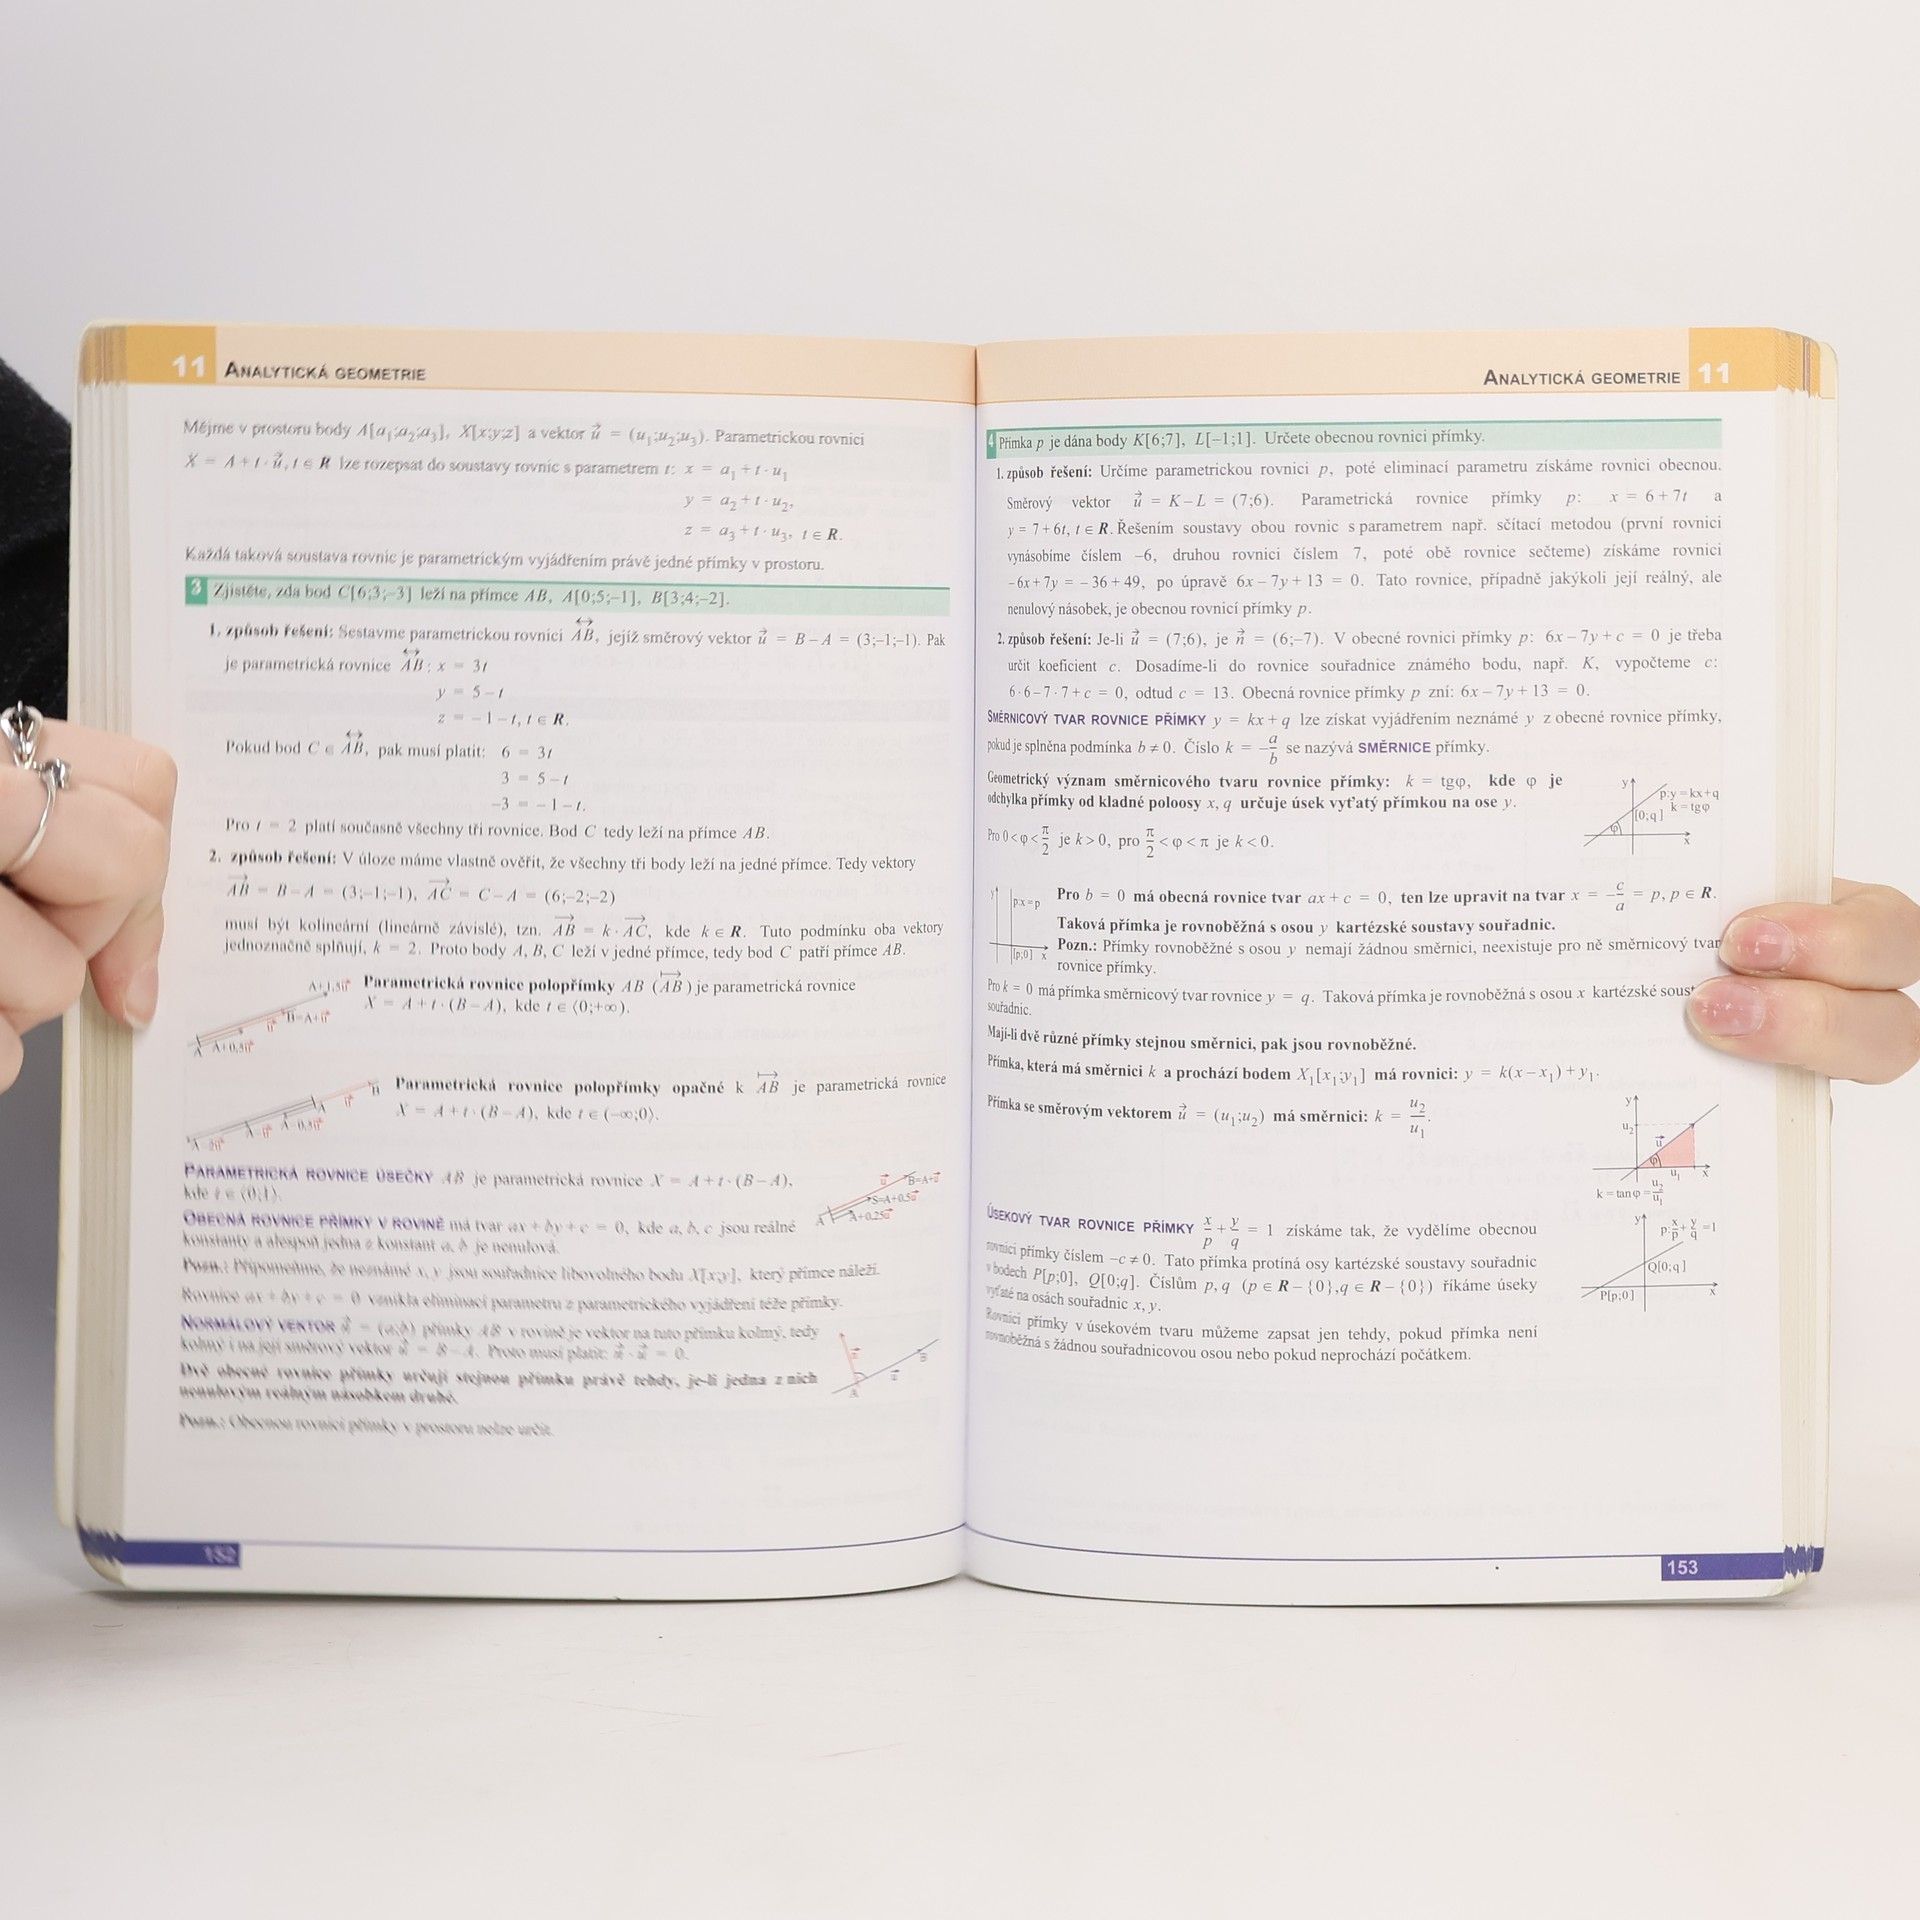 11 ANALYTICKÁ GEOMETRIE
Mějme v prostoru body A[a₁;a₂;a₃], X[x;y;z] a vektor u⃗ = (u₁;u₂;u₃). Parametrickou rovnici
X = A + t · u⃗, t ∈ R lze rozepsat do soustavy rovnic s parametrem t: x = a₁ + t · u₁
y = a₂ + t · u₂,
z = a₃ + t · u₃, t ∈ R.
Každá taková soustava rovnic je parametrickým vyjádřením právě jedné přímky v prostoru.
3 Zjistěte, zda bod C[6;3;–3] leží na přímce AB, A[0;5;–1], B[3;4;–2].
1. způsob řešení: Sestavme parametrickou rovnici AB, jejíž směrový vektor u⃗ = B – A = (3;–1;–1). Pak
je parametrická rovnice AB: x = 3t
y = 5 – t
z = – 1 – t, t ∈ R.
Pokud bod C ∈ AB, pak musí platit: 6 = 3t
3 = 5 – t
–3 = – 1 – t.
Pro t = 2 platí současně všechny tři rovnice. Bod C tedy leží na přímce AB.
2. způsob řešení: V úloze máme vlastně ověřit, že všechny tři body leží na jedné přímce. Tedy vektory
AB = B – A = (3;–1;–1), AC = C – A = (6;–2;–2)
musí být kolineární (lineárně závislé), tzn. AB = k · AC, kde k ∈ R. Tuto podmínku oba vektory
jednoznačně splňují, k = 2. Proto body A, B, C leží v jedné přímce, tedy bod C patří přímce AB.
A+1,5u⃗
B=A+u⃗
u⃗
A A+0,5u⃗
Parametrická rovnice polopřímky AB (AB) je parametrická rovnice
X = A + t · (B – A), kde t ∈ ⟨0;+∞).
B
u⃗
A
A–0,5u⃗
A–u⃗
A–2u⃗
Parametrická rovnice polopřímky opačné k AB je parametrická rovnice
X = A + t · (B – A), kde t ∈ (–∞;0⟩.
PARAMETRICKÁ ROVNICE ÚSEČKY AB je parametrická rovnice X = A + t · (B – A),
kde t ∈ ⟨0;1⟩.
u⃗ B=A+u⃗
S=A+0,5u⃗
A A+0,25u⃗
OBECNÁ ROVNICE PŘÍMKY V ROVINĚ má tvar ax + by + c = 0, kde a, b, c jsou reálné
konstanty a alespoň jedna z konstant a, b je nenulová.
Pozn.: Připomeňme, že neznámé x, y jsou souřadnice libovolného bodu X[x;y], který přímce náleží.
Rovnice ax + by + c = 0 vznikla eliminací parametru z parametrického vyjádření téže přímky.
NORMÁLOVÝ VEKTOR n⃗ = (a;b) přímky AB v rovině je vektor na tuto přímku kolmý, tedy
kolmý i na její směrový vektor u⃗ = B – A. Proto musí platit: n⃗ · u⃗ = 0.
Dvě obecné rovnice přímky určují stejnou přímku právě tehdy, je-li jedna z nich
nenulovým reálným násobkem druhé.
A B
Pozn.: Obecnou rovnici přímky v prostoru nelze určit.
152
ANALYTICKÁ GEOMETRIE 11
4 Přímka p je dána body K[6;7], L[–1;1]. Určete obecnou rovnici přímky.
1. způsob řešení: Určíme parametrickou rovnici p, poté eliminací parametru získáme rovnici obecnou.
Směrový vektor u⃗ = K – L = (7;6). Parametrická rovnice přímky p: x = 6 + 7t a
y = 7 + 6t, t ∈ R. Řešením soustavy obou rovnic s parametrem např. sčítací metodou (první rovnici
vynásobíme číslem –6, druhou rovnici číslem 7, poté obě rovnice sečteme) získáme rovnici
–6x + 7y = – 36 + 49, po úpravě 6x – 7y + 13 = 0. Tato rovnice, případně jakýkoli její reálný, ale
nenulový násobek, je obecnou rovnicí přímky p.
2. způsob řešení: Je-li u⃗ = (7;6), je n⃗ = (6;–7). V obecné rovnici přímky p: 6x – 7y + c = 0 je třeba
určit koeficient c. Dosadíme-li do rovnice souřadnice známého bodu, např. K, vypočteme c:
6 · 6 – 7 · 7 + c = 0, odtud c = 13. Obecná rovnice přímky p zní: 6x – 7y + 13 = 0.
SMĚRNICOVÝ TVAR ROVNICE PŘÍMKY y = kx + q lze získat vyjádřením neznámé y z obecné rovnice přímky,
pokud je splněna podmínka b ≠ 0. Číslo k = –a/b se nazývá SMĚRNICE přímky.
Geometrický význam směrnicového tvaru rovnice přímky: k = tgφ, kde φ je
odchylka přímky od kladné poloosy x, q určuje úsek vyťatý přímkou na ose y.
Pro 0 < φ < π/2 je k > 0, pro π/2 < φ < π je k < 0.
y
p:y=kx+q
k=tgφ
[0;q]
φ
x
y
p:x=p
[p;0] x
Pro b = 0 má obecná rovnice tvar ax + c = 0, ten lze upravit na tvar x = –c/a = p, p ∈ R.
Taková přímka je rovnoběžná s osou y kartézské soustavy souřadnic.
Pozn.: Přímky rovnoběžné s osou y nemají žádnou směrnici, neexistuje pro ně směrnicový tvar
rovnice přímky.
Pro k = 0 má přímka směrnicový tvar rovnice y = q. Taková přímka je rovnoběžná s osou x kartézské soust
souřadnic.
Mají-li dvě různé přímky stejnou směrnici, pak jsou rovnoběžné.
Přímka, která má směrnici k a prochází bodem X₁[x₁;y₁] má rovnici: y = k(x – x₁) + y₁.
Přímka se směrovým vektorem u⃗ = (u₁;u₂) má směrnici: k = u₂/u₁.
y
u₂
u⃗
φ
u₁ x
k=tanφ=u₂/u₁
ÚSEKOVÝ TVAR ROVNICE PŘÍMKY x/p + y/q = 1 získáme tak, že vydělíme obecnou
rovnici přímky číslem –c ≠ 0. Tato přímka protíná osy kartézské soustavy souřadnic
v bodech P[p;0], Q[0;q]. Číslům p, q (p ∈ R – {0}, q ∈ R – {0}) říkáme úseky
vyťaté na osách souřadnic x, y.
Rovnici přímky v úsekovém tvaru můžeme zapsat jen tehdy, pokud přímka není
rovnoběžná s žádnou souřadnicovou osou nebo pokud neprochází počátkem.
y
p:x/p+y/q=1
Q[0;q]
P[p;0]
x
153